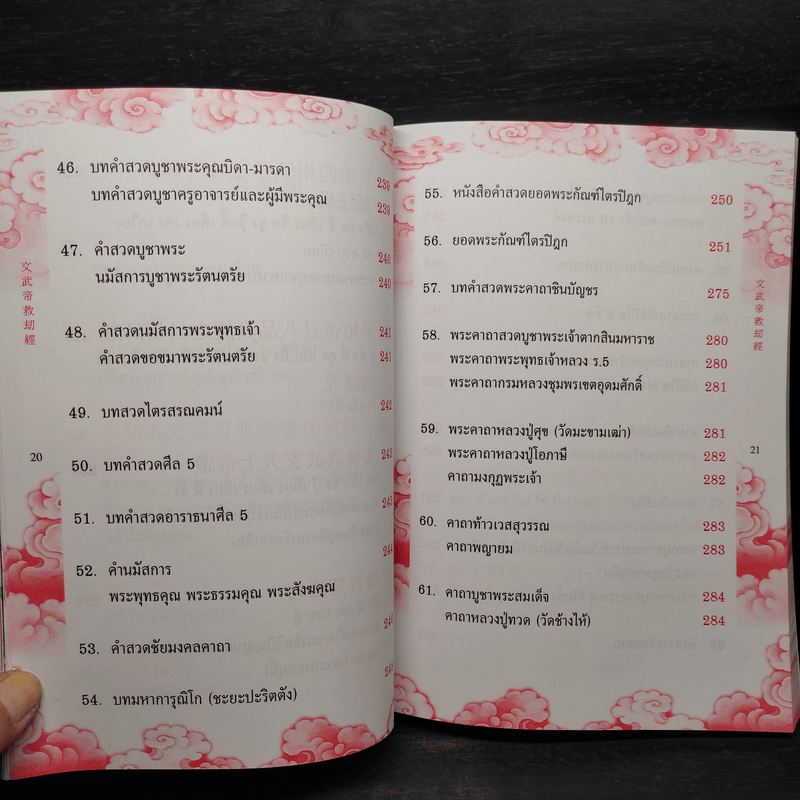 文武帝救劫經
46. บทคำสวดบูชาพระคุณบิดา-มารดา 239
บทคำสวดบูชาครูอาจารย์และผู้มีพระคุณ 239
47. คำสวดบูชาพระ 240
นมัสการบูชาพระรัตนตรัย 240
48. คำสวดนมัสการพระพุทธเจ้า 241
คำสวดขอขมาพระรัตนตรัย 241
49. บทสวดไตรสรณคมน์ 242
50. บทคำสวดศีล 5 243
51. บทคำสวดอาราธนาศีล 5
244
52. คำนมัสการ
พระพุทธคุณ พระธรรมคุณ พระสังฆคุณ
53. คำสวดชัยมงคลคาถา
54. บทมหาการุณิโก (ชะยะปะริตตัง)
20
55. หนังสือคำสวดยอดพระกัณฑ์ไตรปิฎก 250
56. ยอดพระกัณฑ์ไตรปิฎก 251
57. บทคำสวดพระคาถาชินบัญชร 275
58. พระคาถาสวดบูชาพระเจ้าตากสินมหาราช 280
พระคาถาพระพุทธเจ้าหลวง ร.5 280
พระคาถากรมหลวงชุมพรเขตอุดมศักดิ์ 281
59. พระคาถาหลวงปู่ศุข (วัดมะขามเฒ่า) 281
พระคาถาหลวงปู่โอภาษี 282
คาถามงกุฎพระเจ้า 282
60. คาถาท้าวเวสสุวรรณ 283
คาถาพญายม 283
61. คาถาบูชาพระสมเด็จ 284
คาถาหลวงปู่ทวด (วัดช้างไห้) 284
文武帝救劫經
21